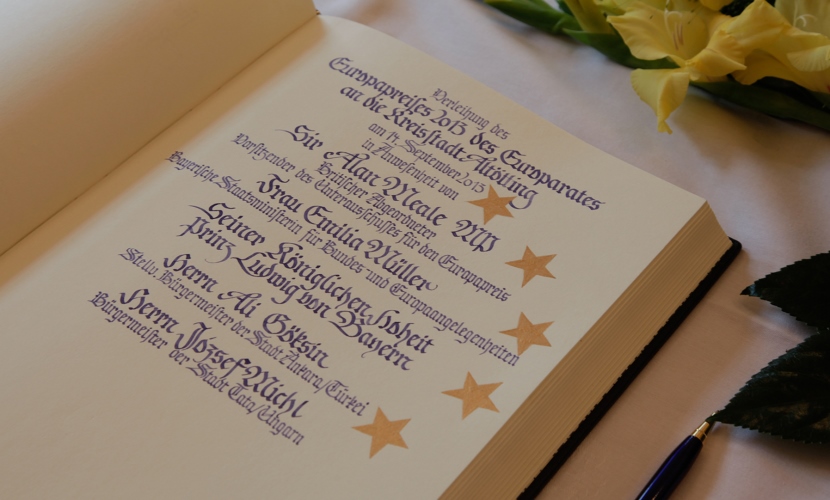 Verleihung des
Europapreises 2013 des Europarates
an die Kreisstadt Altötting
am 14. September 2013
in Anwesenheit von
Sir Alan Meale MP
Britischer Abgeordneter
Vorsitzender des Unterausschusses für den Europapreis
Frau Emilia Müller
Bayerische Staatsministerin für Bundes- und Europaangelegenheiten
Seiner Königlichen Hoheit
Prinz Ludwig von Bayern
Herrn Ali Göksin
Stellv. Bürgermeister der Stadt Ankara/Türkei
Herrn József Michl
Bürgermeister der Stadt Tata/Ungarn